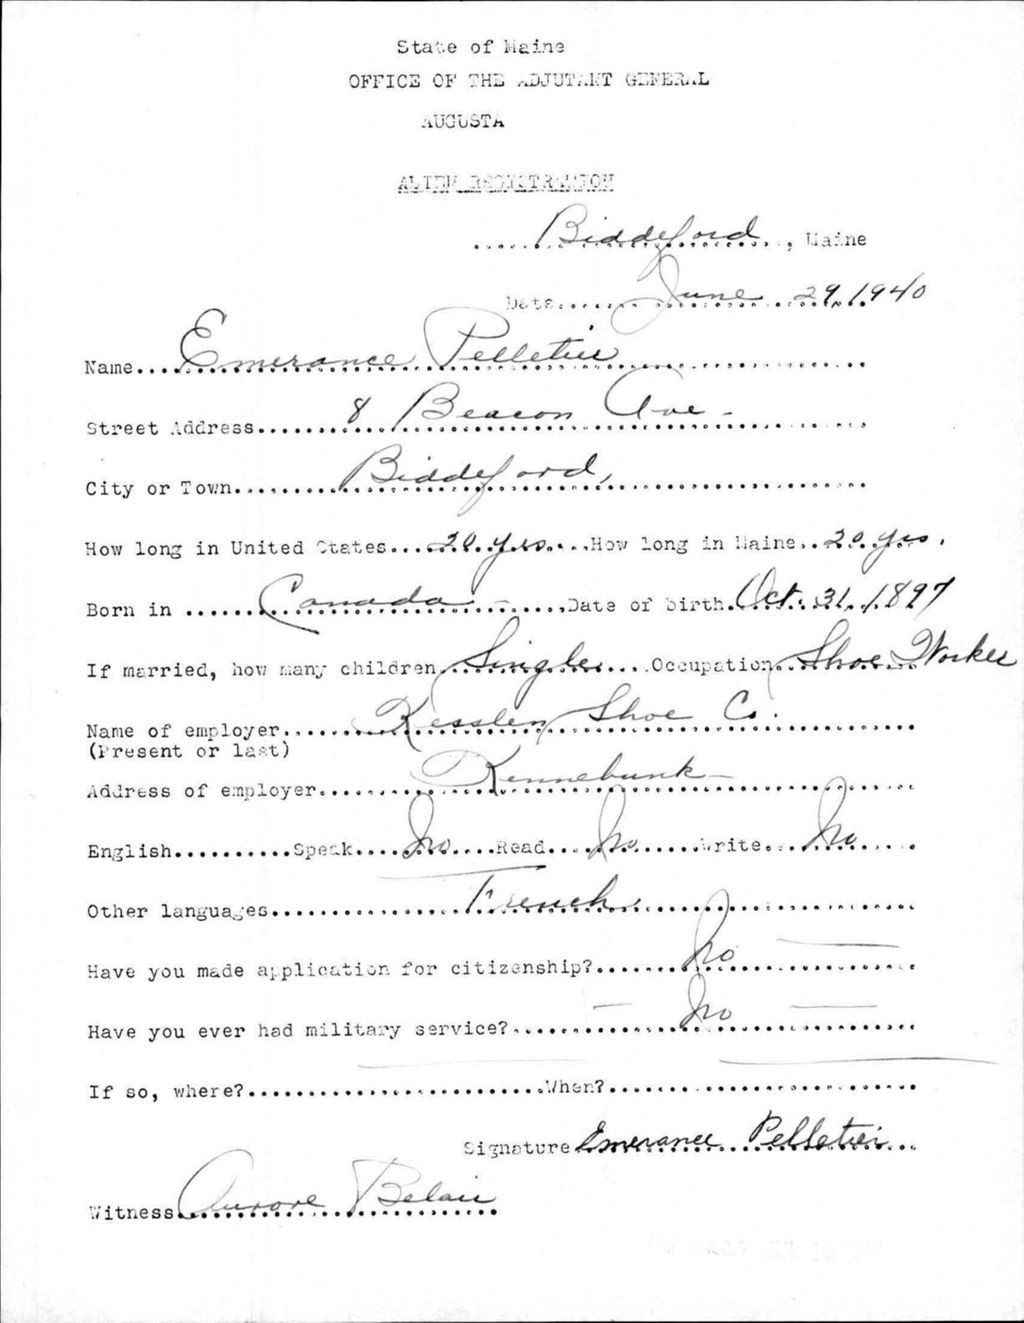 State of Maine
OFFICE OF THE ADJUTANT GENERAL
AUGUSTA
ALIEN REGISTRATION
Biddeford, Maine
Date June 29, 1940
Name Emerance Pelletier
Street Address 8 Beacon Ave -
City or Town Biddeford,
How long in United States 20 yrs. How long in Maine 20 yrs.
Born in Canada - Date of birth Oct. 31, 1897
If married, how many children Single Occupation Shoe Worker
Name of employer Kesslen Shoe Co.
(Present or last)
Address of employer Kennebunk -
English Speak No Read No Write No
Other languages French
Have you made application for citizenship? No
Have you ever had military service? No
If so, where? When?
Signature Emerance Pelletier
Witness Aurore Belair